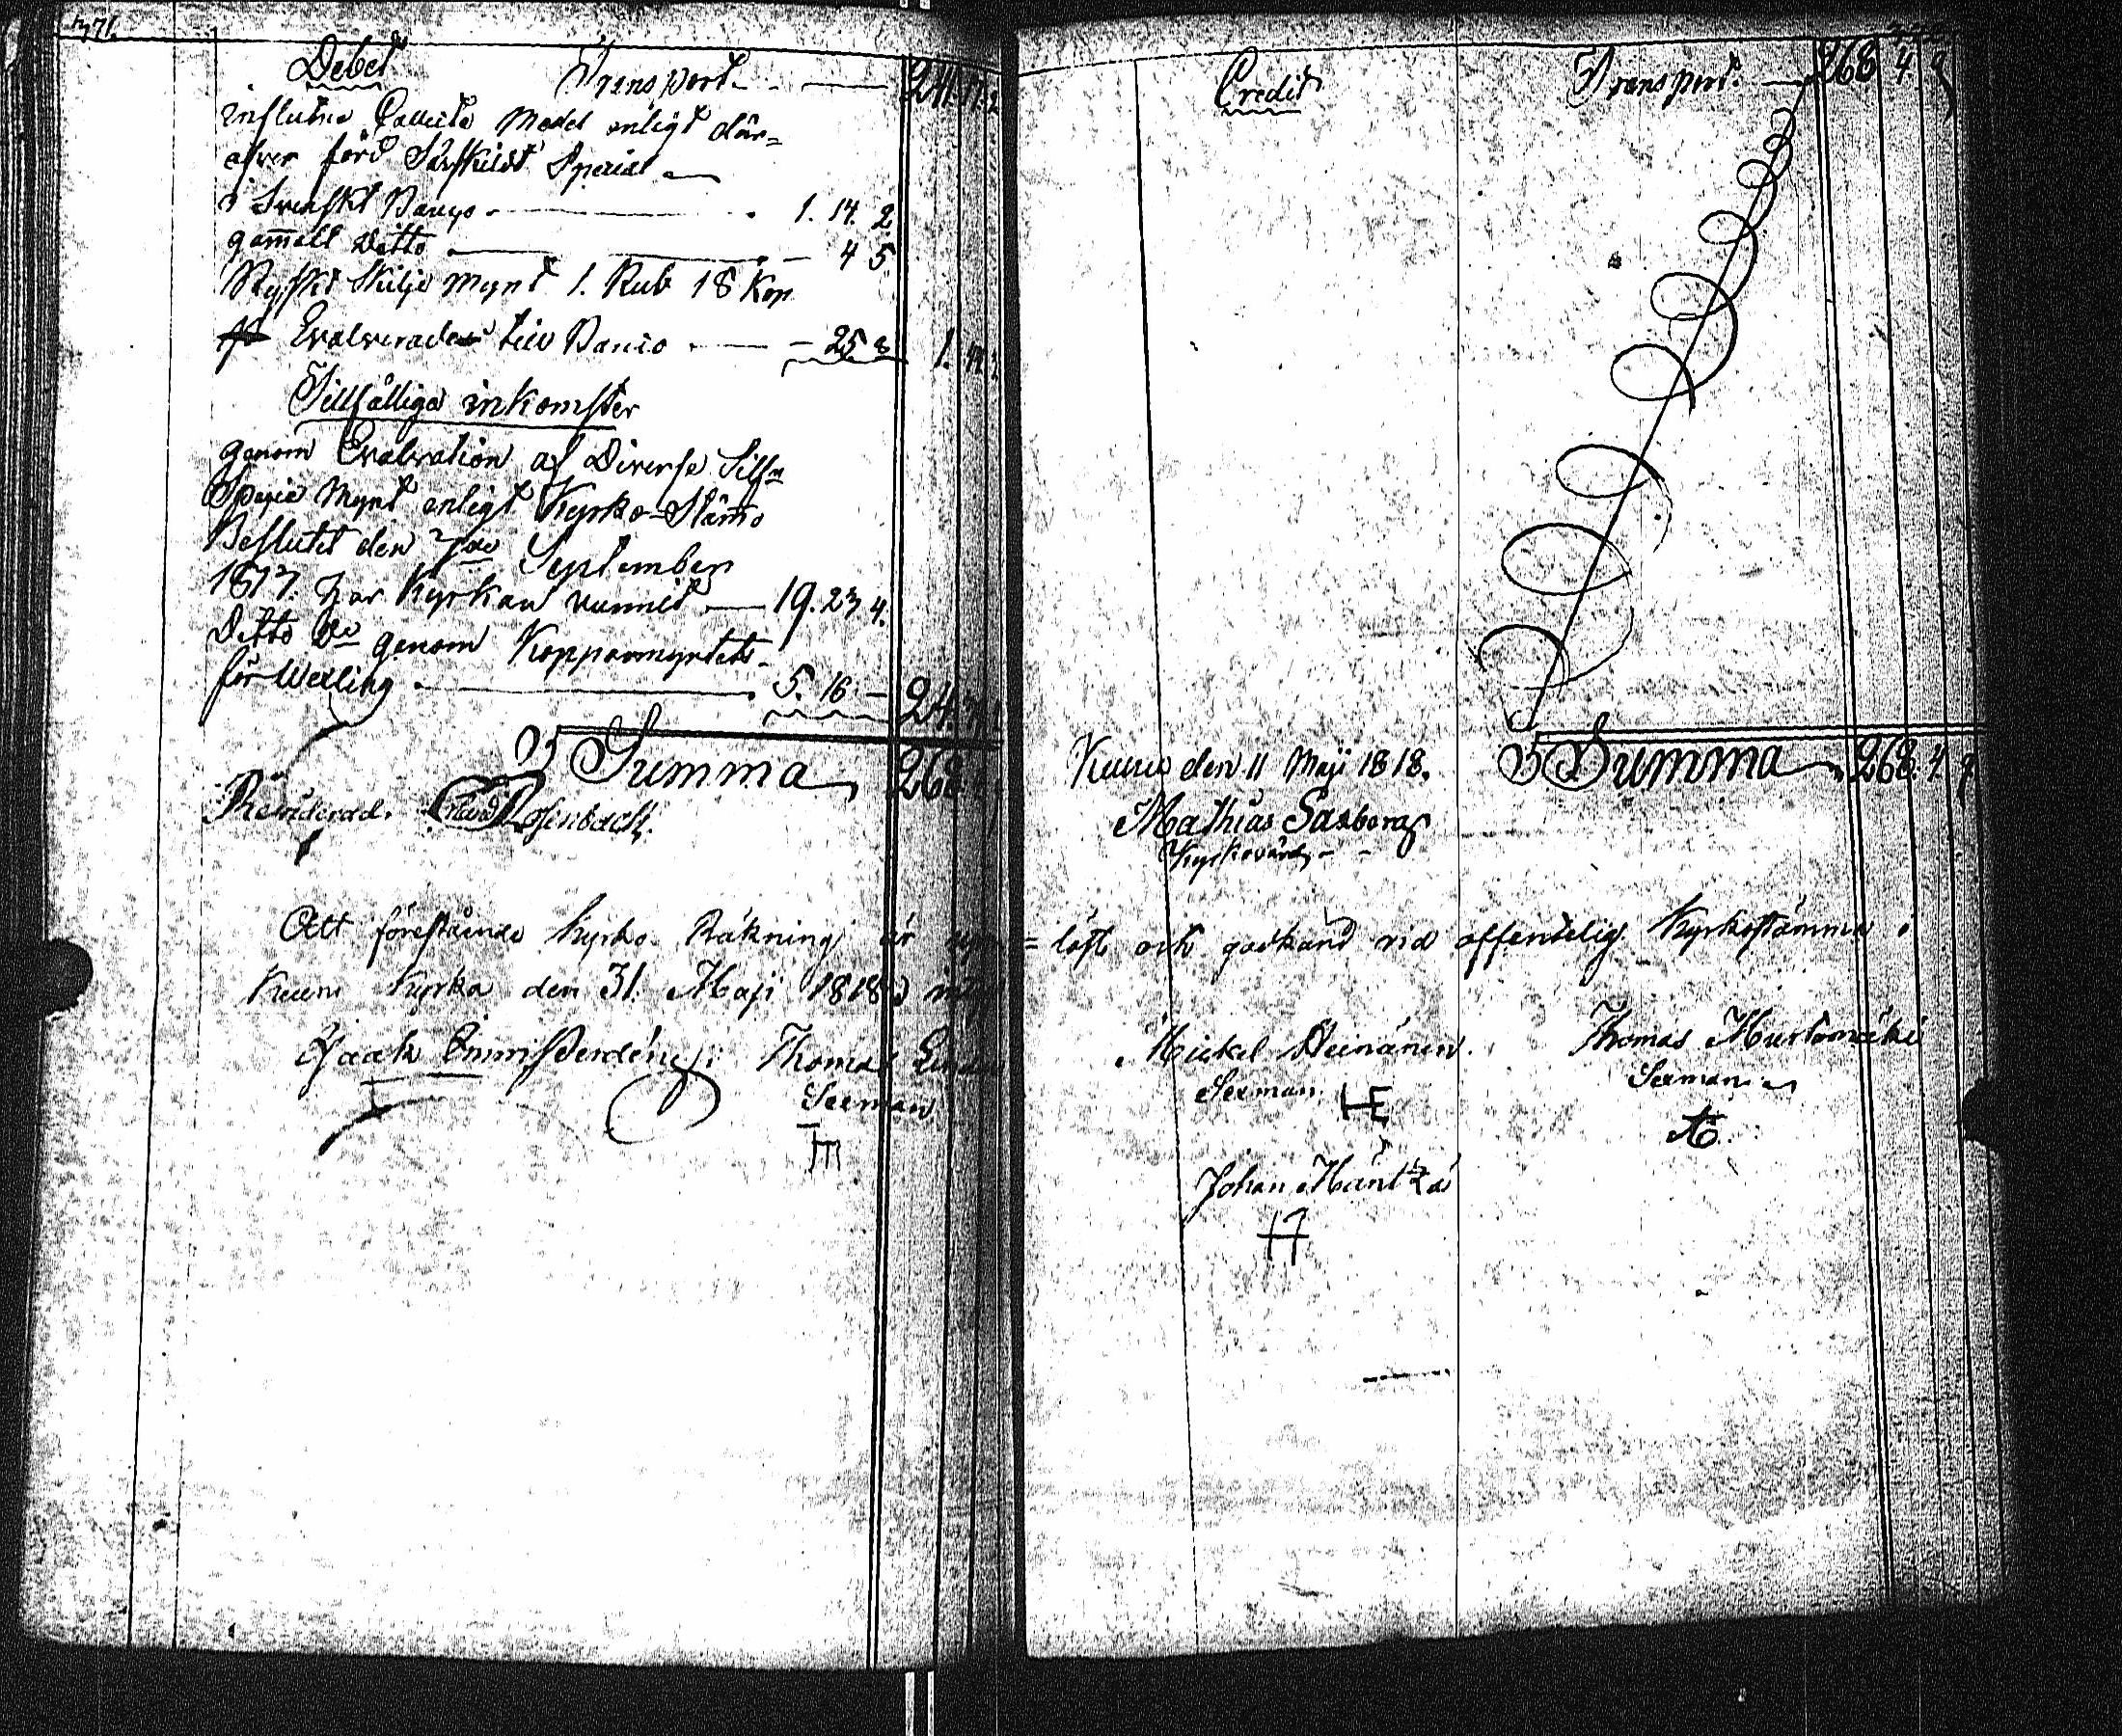 371.
Debet Transport 241. 17.
influtne Collecte Medel enligt där=
öfver förd Särskildt Special
i Svenskt Banco 1. 14. 2
gamalt Ditto 4 5
Ryskt Skilje Mynt 1. Rub 18 Kop
Evalverade till Banco 25 8 1.
Tillfälliga inkomster
genom Evalvation af Diverse Silf
Specie Mynt enligt Kyrko-Stämo
Beslutet den 7de September
1817. har Kyrkan vunnit 19. 23 4.
Ditto Do genom Kopparmyntets
förWexling 5. 16 24.
Summa 268
Reviderad. Rosenback.
Credit Transport. 268 4 9
Summa 268. 4. 9
den 11 Maji 1818.
Mathias Saxberg
Kyrkovärd
Att förestående Kyrko Räkning är upp = läst och godkänd vid offentelig Kyrkostämma i
Kyrka den 31. Maji 1818
Isaak Thomas
Sexman
Mickel Heinänen.
Sexman HE
Thomas Murtomäki
Sexman
Johan Mänt